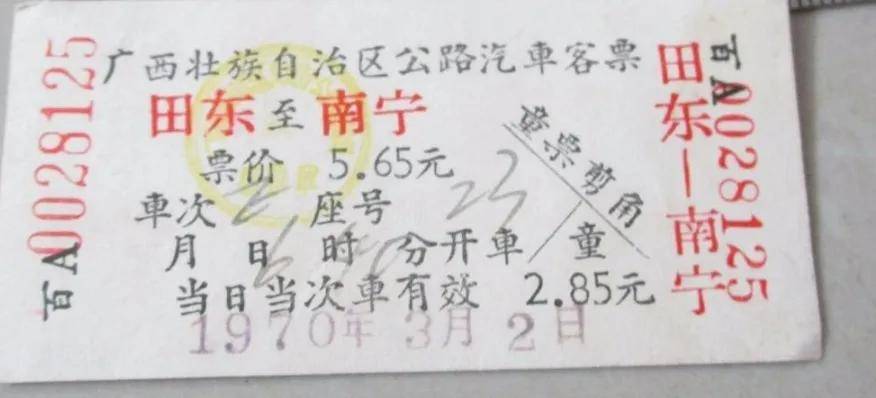 百A0028125
广西壮族自治区公路汽車客票
田东至南宁
票价 5.65元
車次 2 座号 23
月 日 6 时 分开車
当日当次車有效
1970年 3月 2日
童票剪角
童
2.85元
田东—南宁
百A0028125